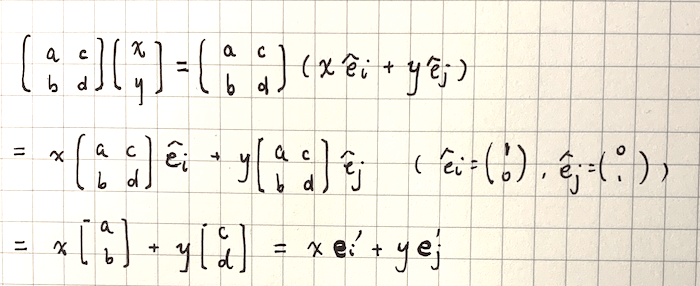 [a c; b d][x; y] = [a c; b d](x ê_i + y ê_j)
= x[a c; b d] ê_i + y[a c; b d] ê_j ( ê_i = (1; 0), ê_j = (0; 1) )
= x[a; b] + y[c; d] = x e_i' + y e_j'